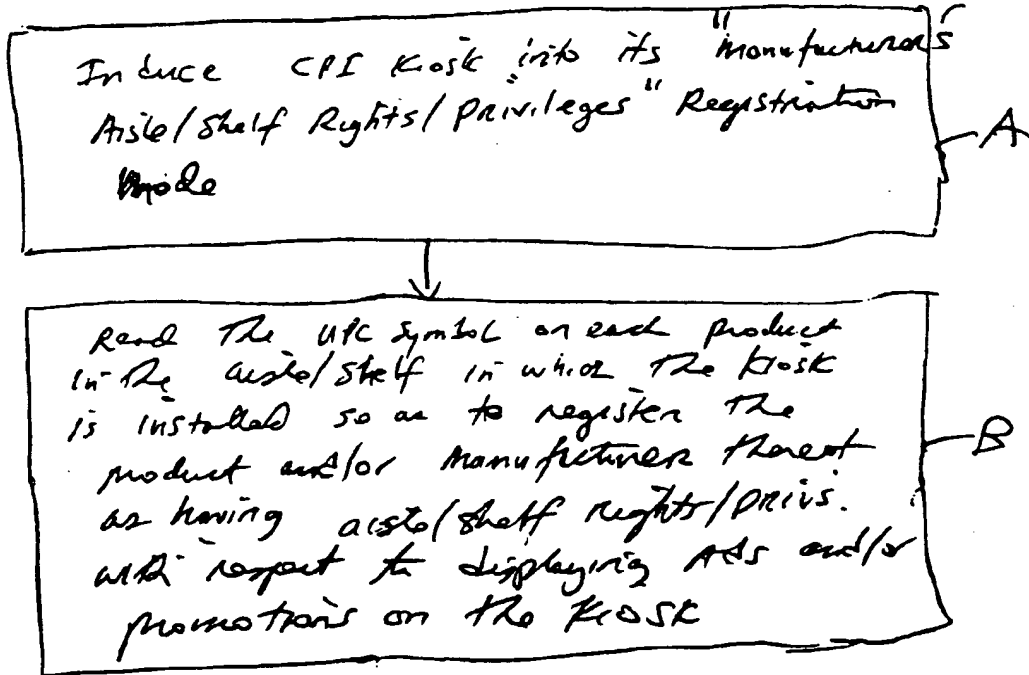 Induce CPI Kiosk into its "Manufacturer's
Aisle/Shelf Rights/Privileges" Registration
Mode
A
Read The UPC Symbol on each product
in The aisle/shelf in which The Kiosk
is installed so as to register The
product and/or Manufacturer thereof
as having aisle/shelf rights/privs.
with respect to displaying Ads and/or
promotions on the Kiosk
B